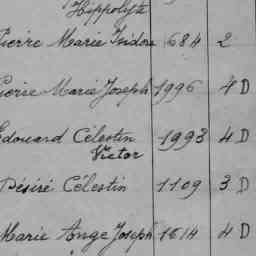 Hippolyte
Pierre Marie Isidore 684 2
Pierre Marie Joseph 1996 4 D
Edouard Célestin 1993 4 D
Victor
Désiré Célestin 1109 3 D
Marie Ange Joseph 1614 4 D